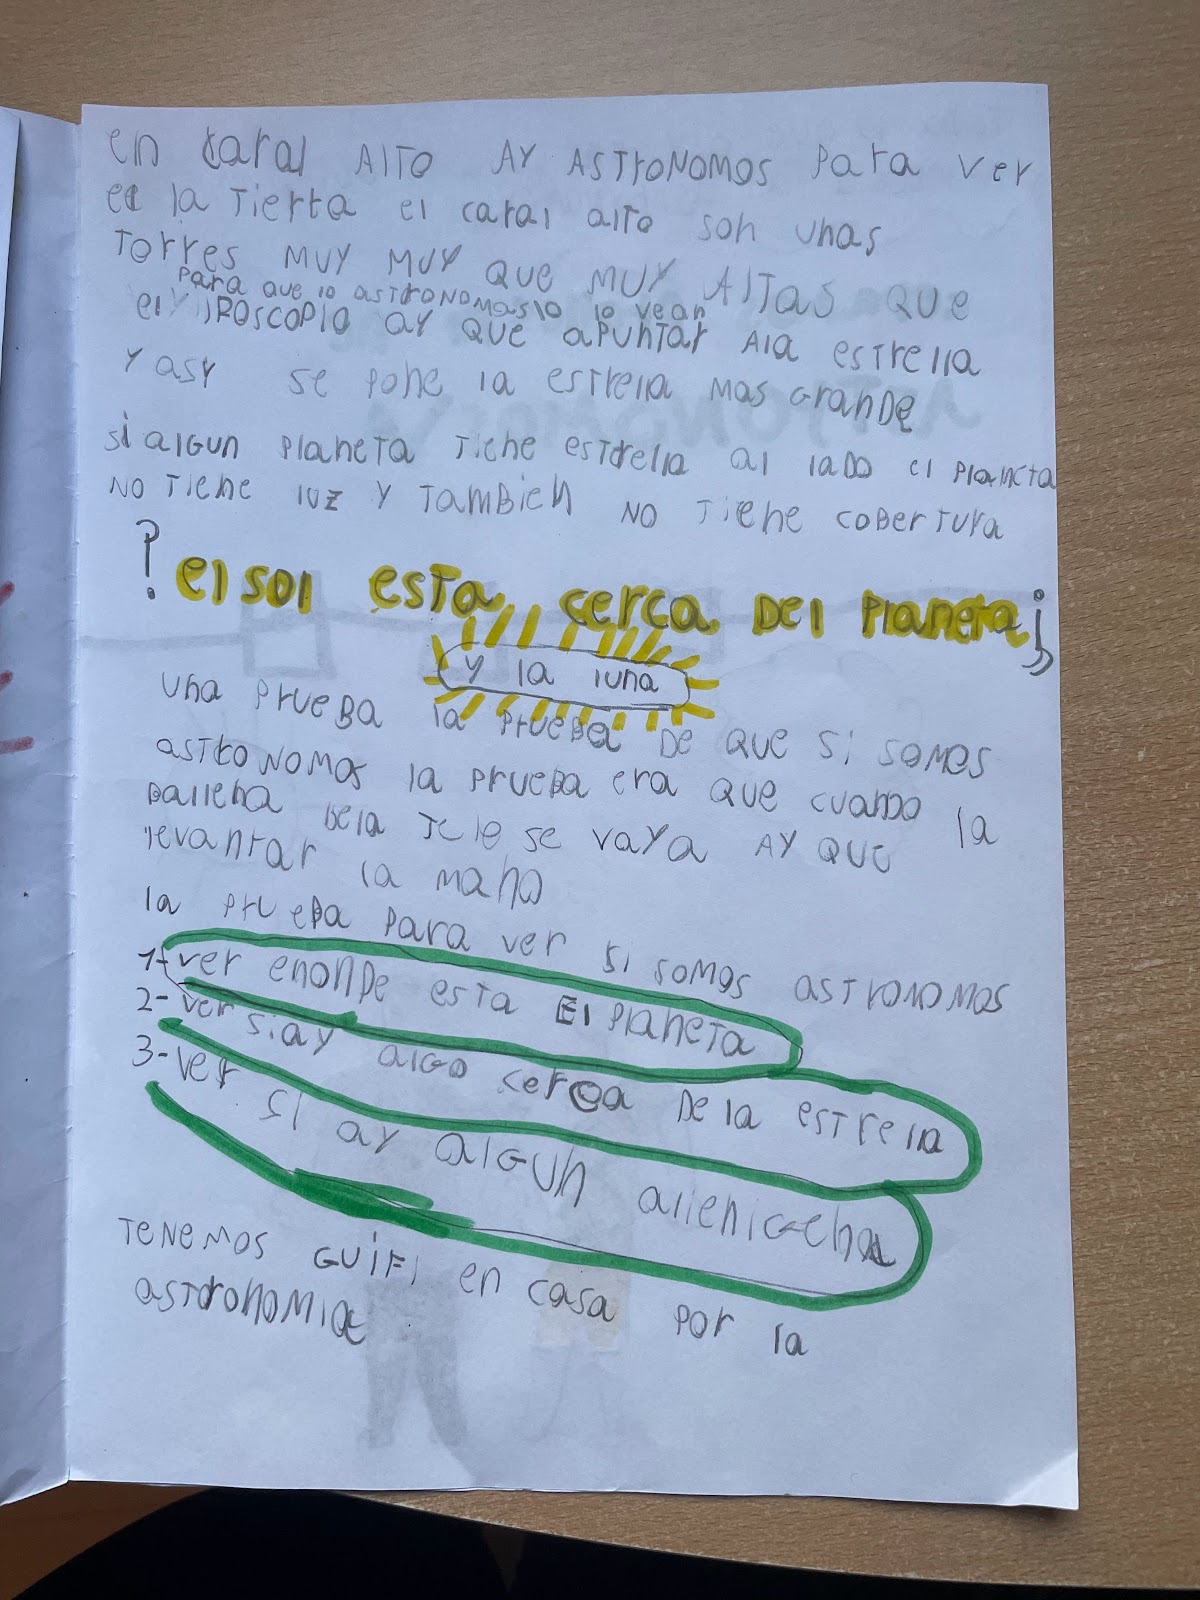 en caral ALTO AY ASTrONOMOS Para ver
el la Tierra el caral alto son unas
Torres MUY MUY QUE MUY AlTAS QUE
Para que lo ASTrONOMAS lo lo vean
el IROSCOPIO AY QUE APUNTAr Ala ESTrella
Y ASY se pone la estrella MAS GrANDE
si ALGUN Planeta Tiene estrella al lado el planeta
NO Tiene luz Y TAMBien NO Tiene COBERTUra
? el SOl esTa cerca Del Planeta ¡
Y la luna
Una PrUEBA la PrUEBa DE QUE Si SOMOS
ASTrONOMOS la PrUEBa era QUE CUANDO la
Ballena Dela Tele se vaya AY QUE
levantar la mano
la PrUEBa Para ver Si SOMOS ASTrONOMOS
1-ver enonDe esTa El Planeta
2-ver siay algo cerca De la estrella
3-ver Si AY alGUn alienigena
TENEMOS GUiFi en casa por la
astronomia